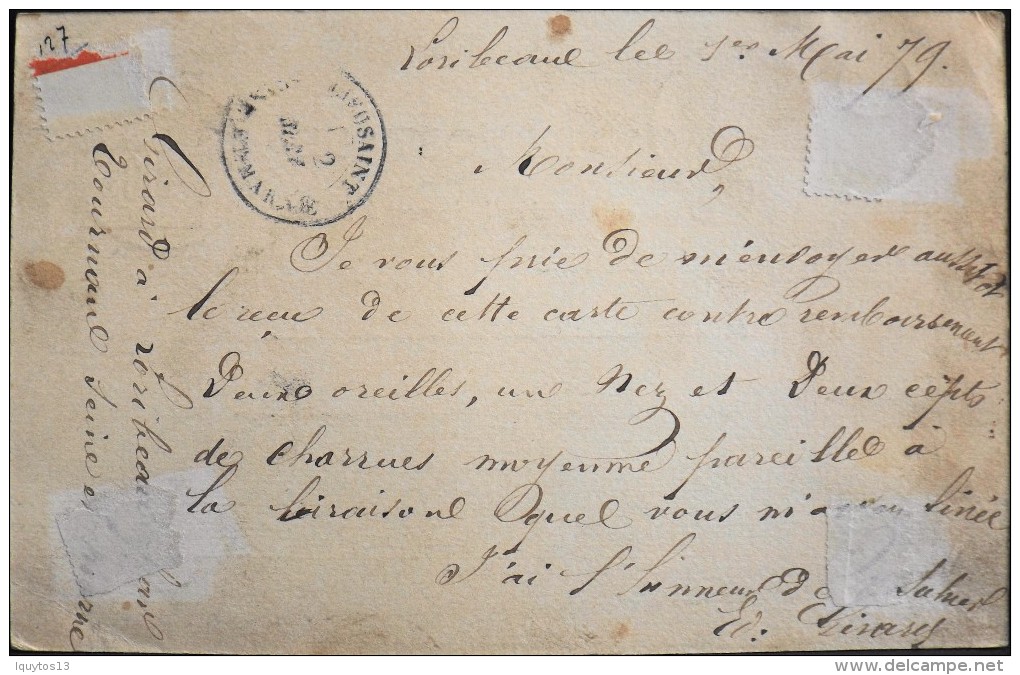 127
Loribeaue lee 1er Mai 79.
LIEUSAINT
2
Monsieur,
Je vous prie de m'envoyer aussitot
le reçu de cette carte contre remboursement
Deux oreilles, un Nez et Deux cepts
de charrues moyenne pareille à
la livraisone quel vous m'
J'ai l'honneur de Saluer
Ed. Girard
Girard à loribeau
Tournane Seine et Marne
lquytos13
www.delcampe.net